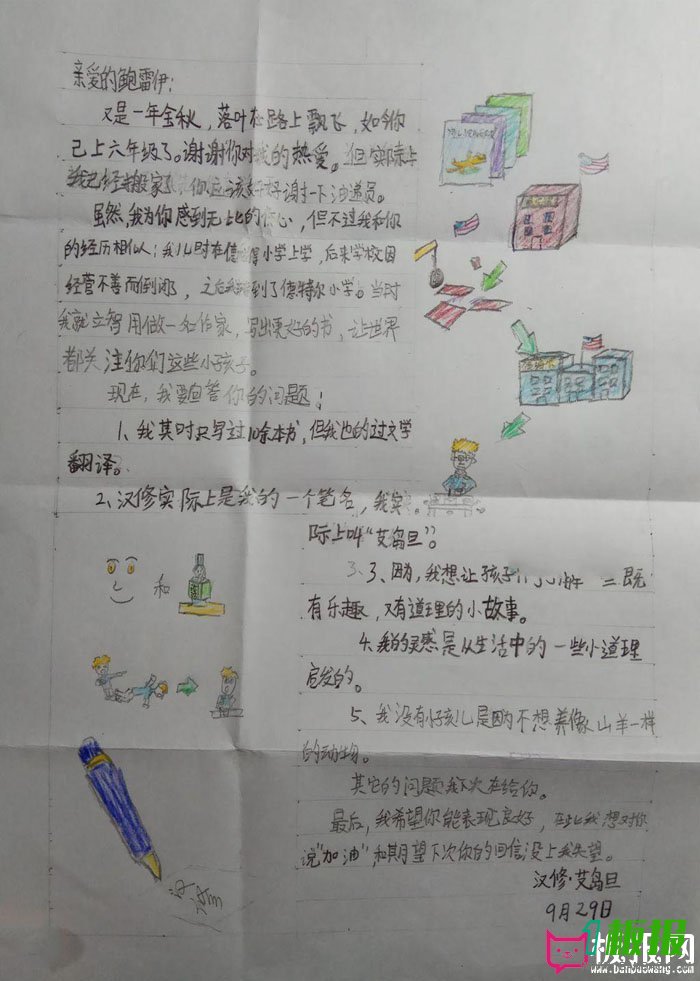 亲爱的鲍雷伊：
又是一年金秋，落叶在路上飘飞，如今你
已上六年级了。谢谢你对我的热爱。但实际上
我已经搬家了 你应该好好谢一下油递员。
虽然，我为你感到无比的信心，但不过我和你
的经历相似：我儿时在 小学上学，后来学校因
经营不善而倒闭了，之后我 到了德特尔小学。当时
我就立智用做一名作家，写出更好的书，让世界
都关注你们这些小孩子。
现在，我要回答你的问题：
1、我其时只写过10余本书，但我也的过文学
翻译。
2、汉修实际上是我的一个笔名，我实
际上叫“艾岛旦”。
3、因为，我想让孩子 既
有乐趣，又有道理的小故事。
4、我的灵感是从生活中的一些小道理
启发的。
和
5、我没有小孩儿是因为不想养像山羊一样
的动物。
其它的问题我下次在给你。
最后，我希望你能表现良好，在此我想对你
说“加油”，和期望下次你的回信没上我失望。
汉修·艾岛旦
9月29日
板报网
www.banbaowang.com